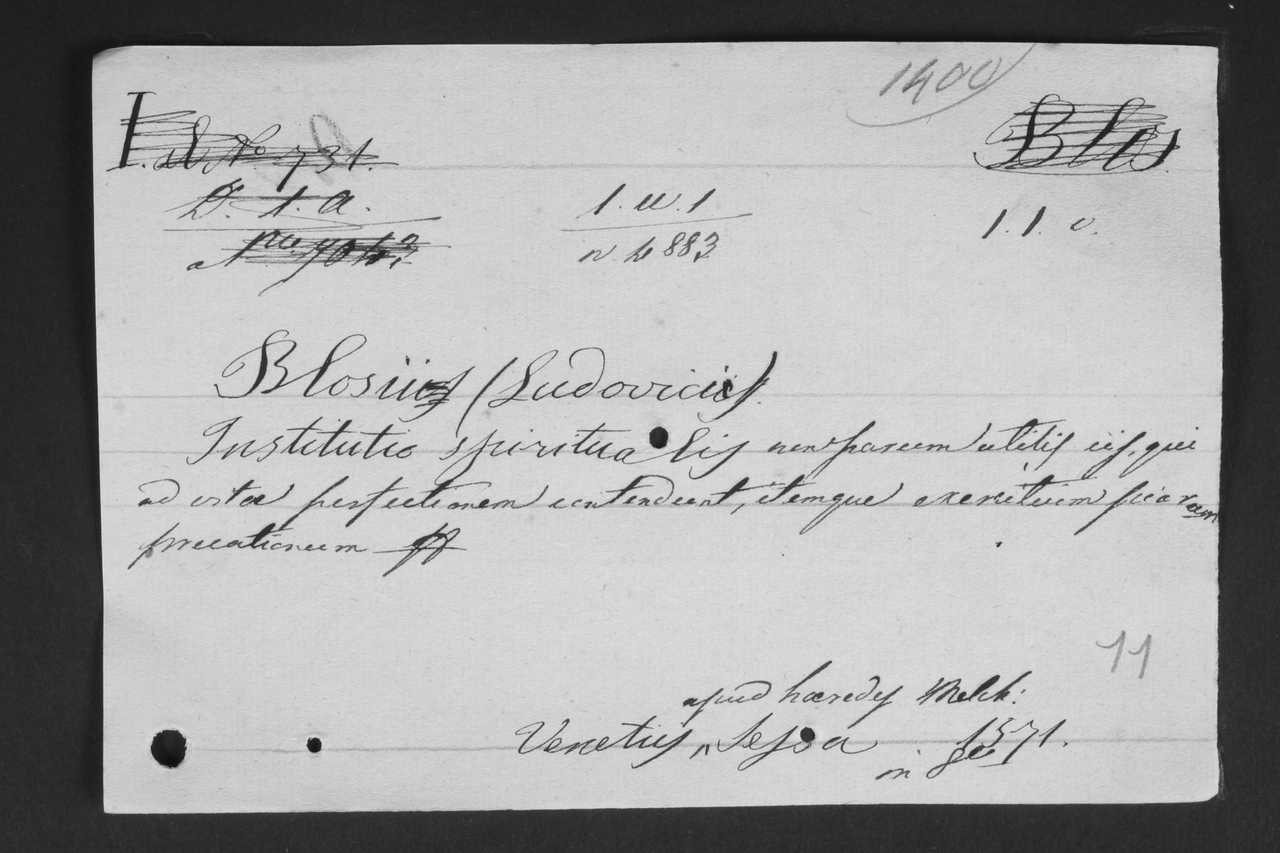 1400
Blos.
I. d No 731.
D. 1. a.
1. u. 1
1. 1. v.
n 4883
Blosius (Ludovicus)
Institutio spiritualis non parum utilis iis, qui
ad vitae perfectionem contendunt, itemque exercitium piarum
precationum
11
apud haeredes Melch:
Venetiis, Sessa 1571.
in 8o